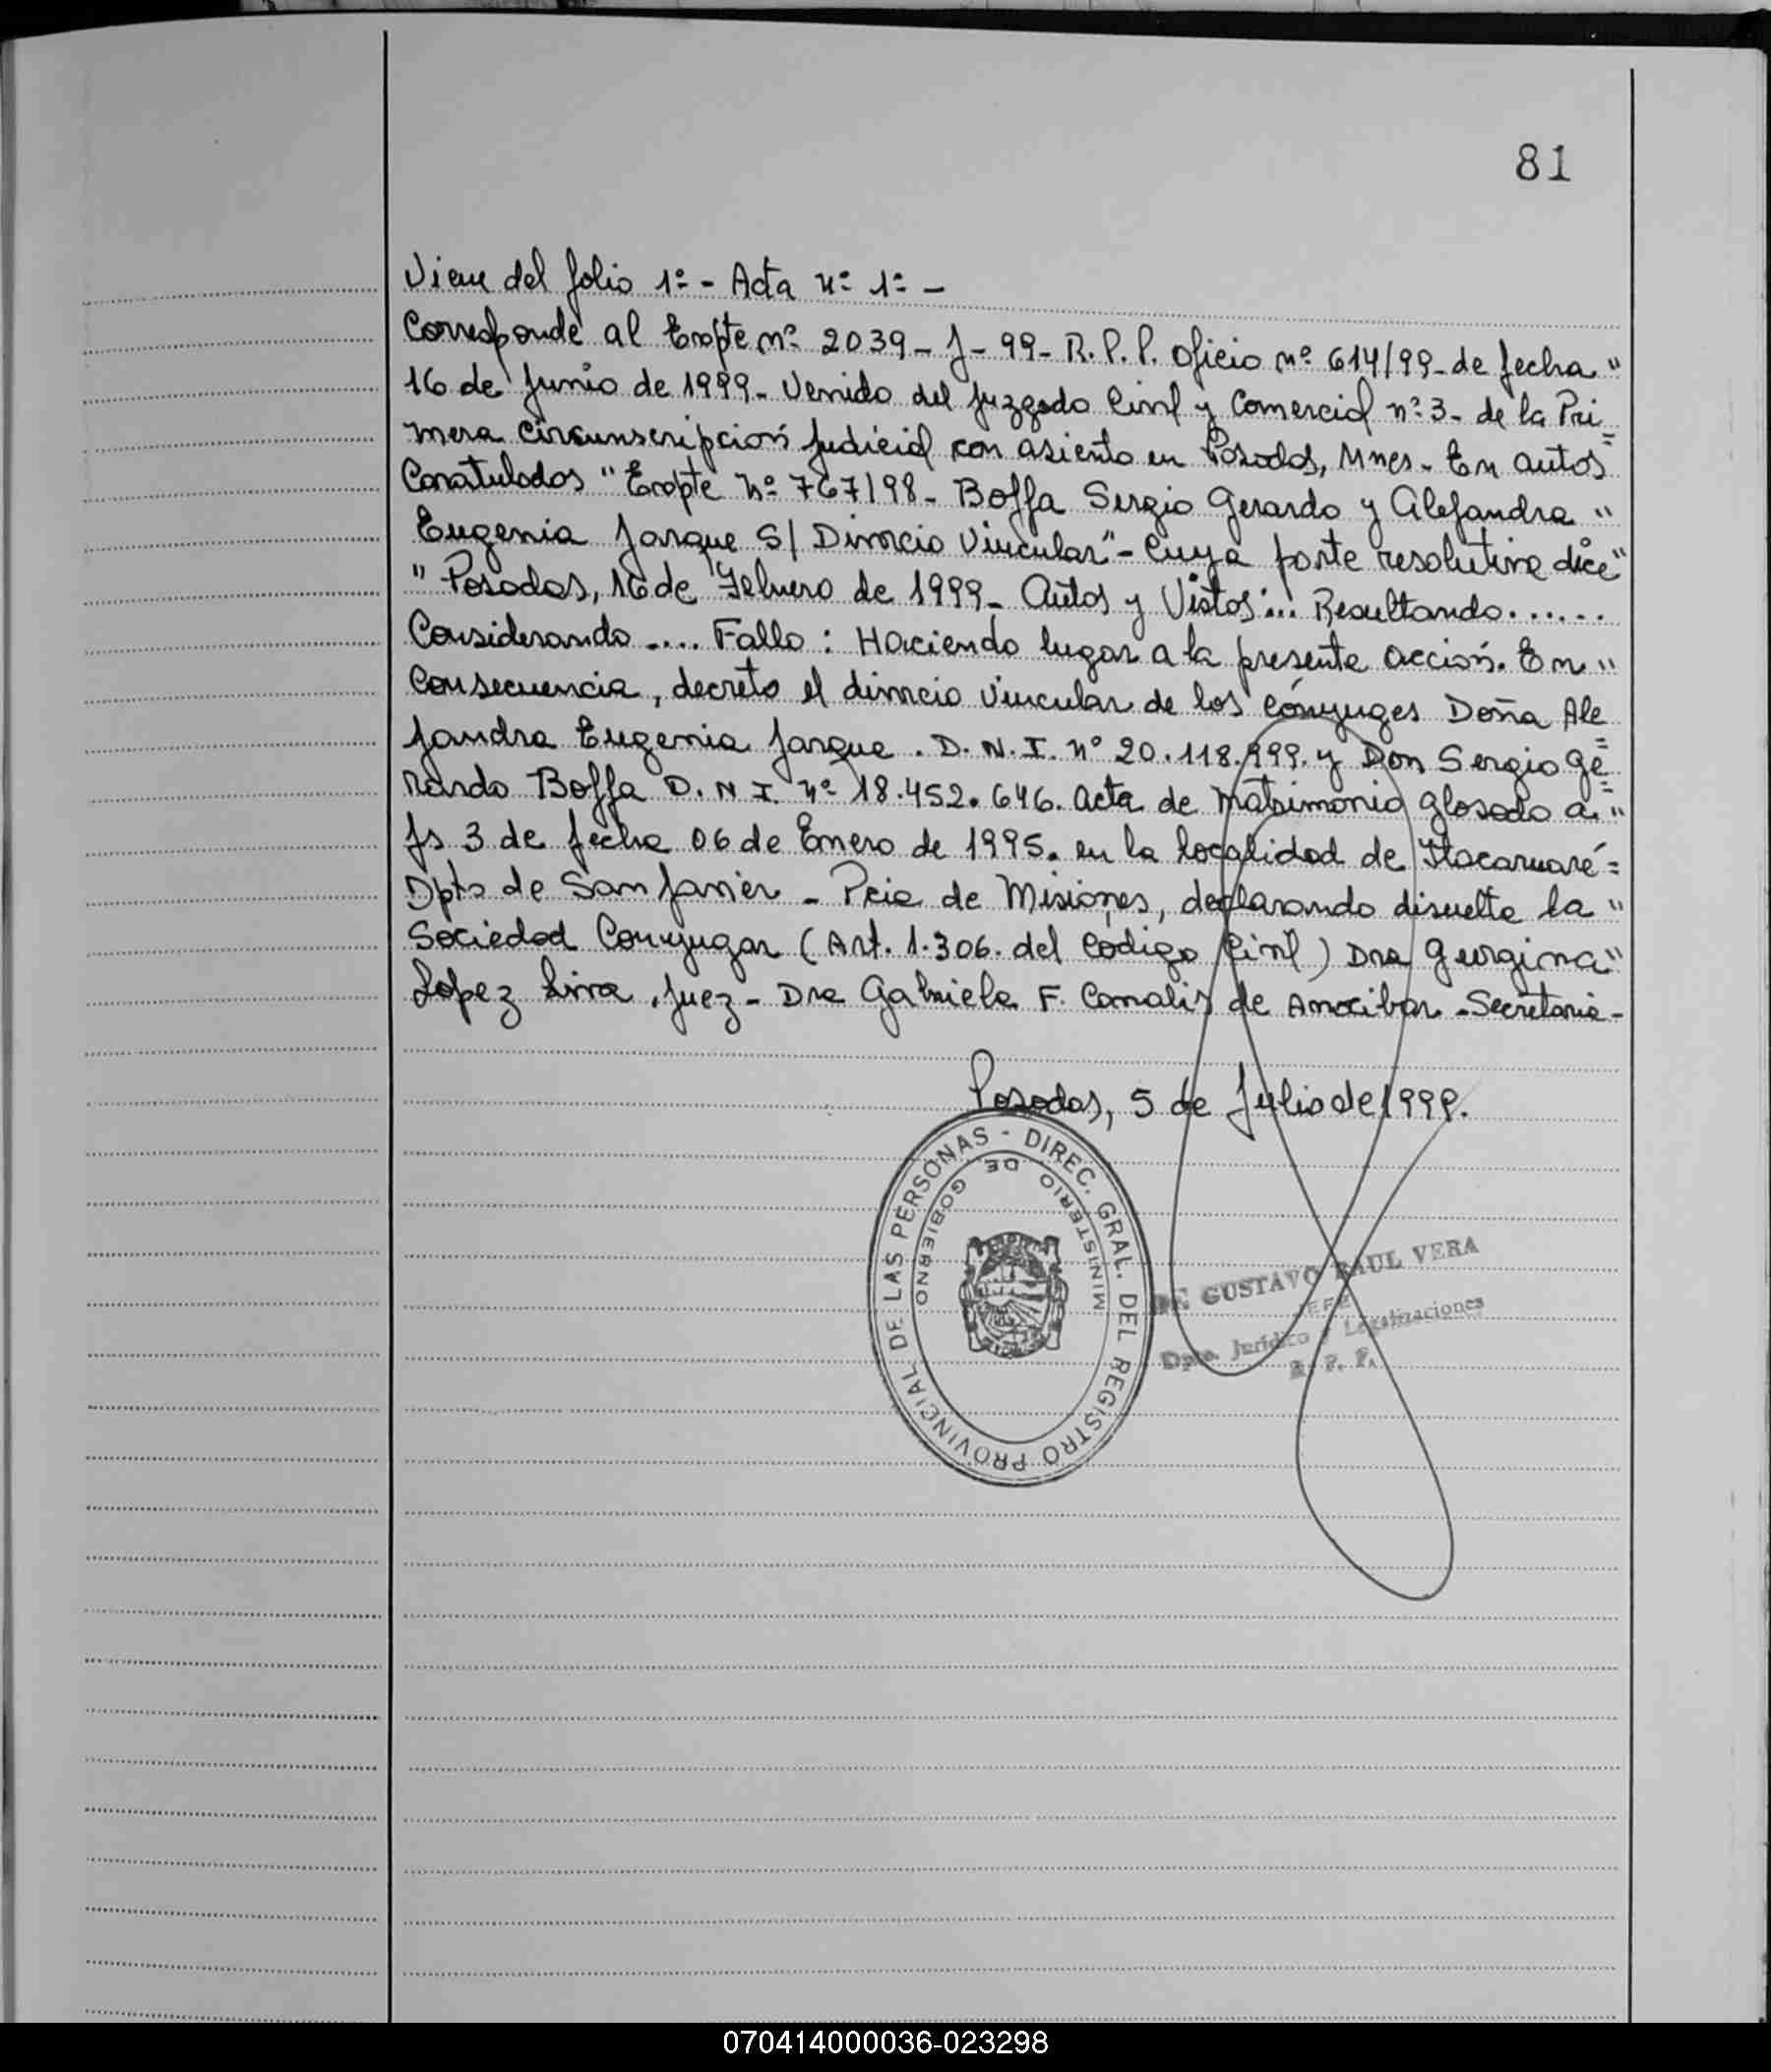 81
Viene del folio 1º - Acta nº 1º -
Corresponde al Expte nº 2039 - J - 99 - R.P.P. Oficio nº 614/99 - de fecha "
16 de Junio de 1999 - Venido del Juzgado Civil y Comercial nº 3 - de la Pri=
mera Circunscripción Judicial con asiento en Posadas, Mnes - En autos
Caratulados "Expte nº 767/98 - Boffa Sergio Gerardo y Alejandra "
Eugenia Jarque S/ Divorcio Vincular" - Cuya parte resolutiva dice "
" Posadas, 16 de Febrero de 1999 - Autos y Vistos:... Resultando......
Considerando .... Fallo: Haciendo lugar a la presente acción. En "
Consecuencia, decreto el divorcio vincular de los cónyuges Doña Ale=
jandra Eugenia Jarque. D.N.I. nº 20.118.999. y Don Sergio Ge=
rardo Boffa D.N.I. nº 18.452.646. Acta de Matrimonio glosado a "
fs 3 de fecha 06 de Enero de 1995. en la localidad de Itacaruaré =
Dpto de San Javier - Pcia de Misiones, declarando disuelta la "
Sociedad Conyugar (Art. 1.306. del Código Civil) Dra Georgina "
Lopez Liva. Juez - Dra Gabriela F. Canalis de Amocibar - Secretaria -
Posadas, 5 de Julio de 1999.
DIREC. GRAL. DEL REGISTRO PROVINCIAL DE LAS PERSONAS -
MINISTERIO DE GOBIERNO
GUSTAVO RAUL VERA
JEFE
Dpto. Jurídico y Legalizaciones
R. P. P.
070414000036-023298